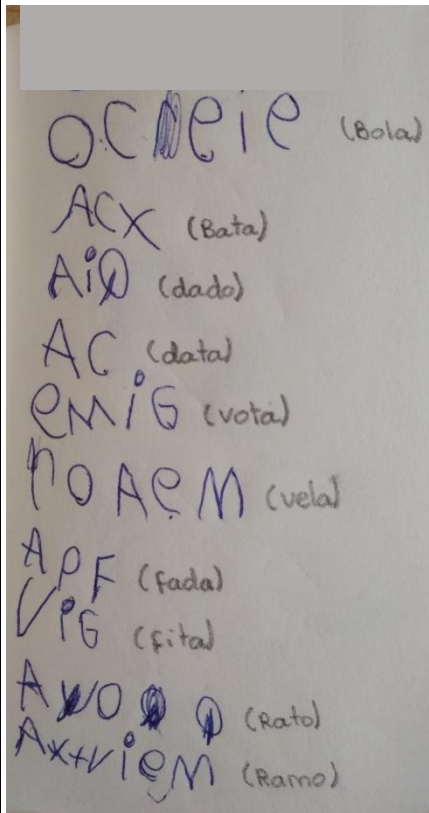 OCeie (Bola)
ACX (Bata)
AiO (dado)
AC (data)
emiG (vota)
noAem (vela)
APF (fada)
ViG (fita)
AVO (Rato)
Ax+Viem (Ramo)